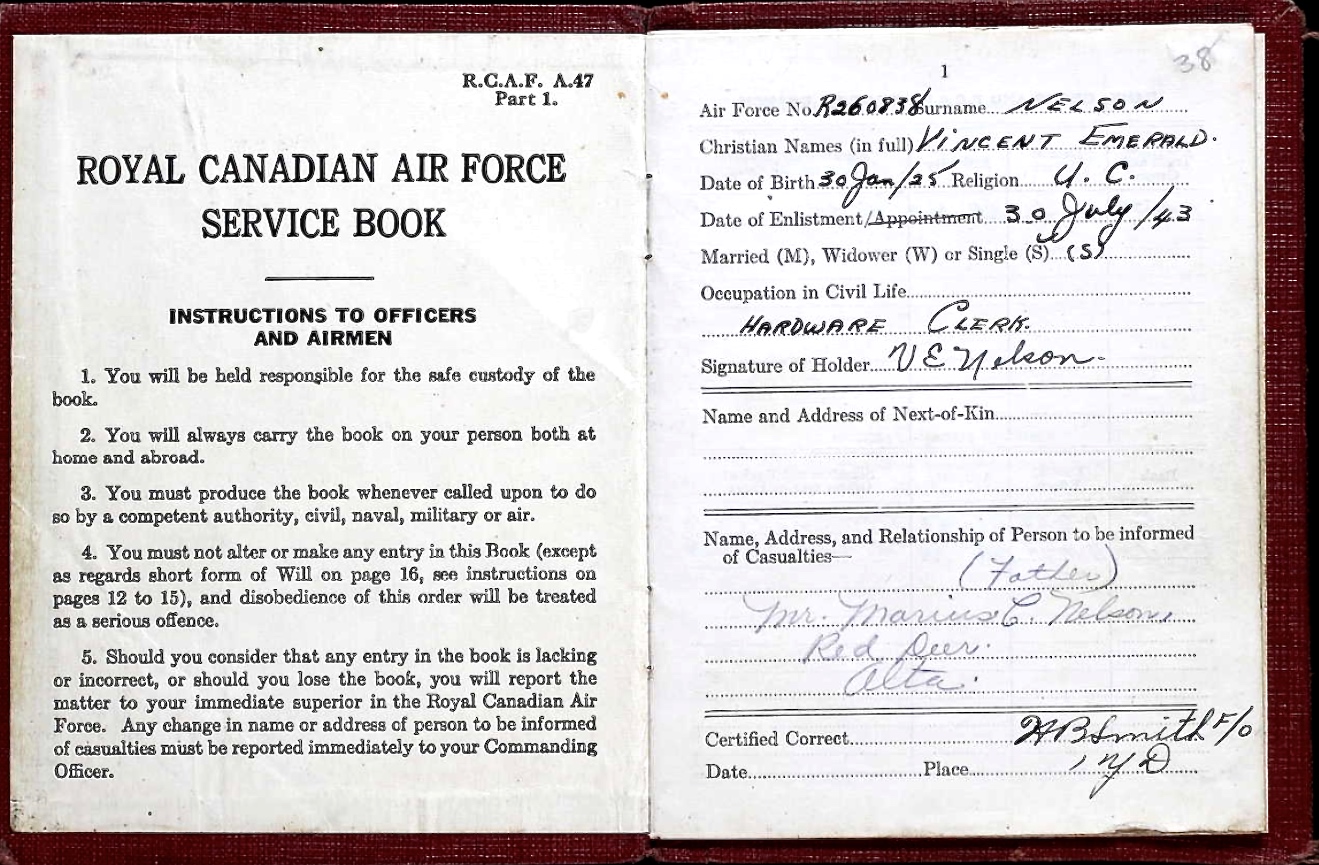 R.C.A.F. A.47
Part 1.
ROYAL CANADIAN AIR FORCE
SERVICE BOOK
INSTRUCTIONS TO OFFICERS
AND AIRMEN
1. You will be held responsible for the safe custody of the
book.
2. You will always carry the book on your person both at
home and abroad.
3. You must produce the book whenever called upon to do
so by a competent authority, civil, naval, military or air.
4. You must not alter or make any entry in this Book (except
as regards short form of Will on page 16, see instructions on
pages 12 to 15), and disobedience of this order will be treated
as a serious offence.
5. Should you consider that any entry in the book is lacking
or incorrect, or should you lose the book, you will report the
matter to your immediate superior in the Royal Canadian Air
Force. Any change in name or address of person to be informed
of casualties must be reported immediately to your Commanding
Officer.
38
1
Air Force No. R260838 Surname NELSON
Christian Names (in full) VINCENT EMERALD.
Date of Birth 30 Jan/25 Religion U. C.
Date of Enlistment/Appointment 30 July/43
Married (M), Widower (W) or Single (S) (S)
Occupation in Civil Life
HARDWARE CLERK.
Signature of Holder V E Nelson.
Name and Address of Next-of-Kin
Name, Address, and Relationship of Person to be informed
of Casualties—
(Father)
Mr. Marius C. Nelson,
Red Deer.
Alta.
Certified Correct HBSmith F/O
Date Place 1 Y D